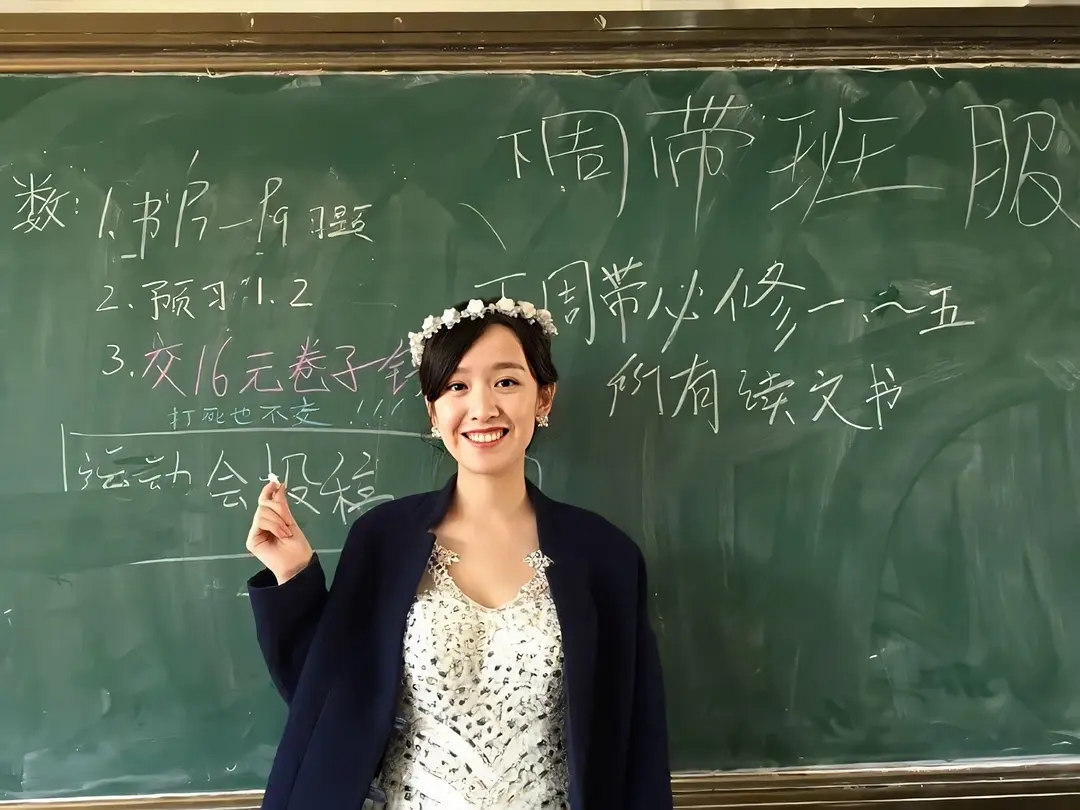 数: 1. 书P7—P9 习题
2. 预习 1.2
3. 交16元卷子钱
打死也不交!!!
运动会投稿
下周带班服
下周带必修一~五
所有读文书